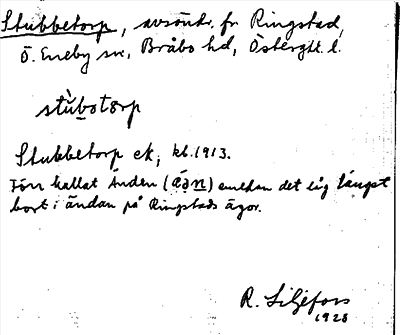 Stubbetorp, avsöndr. fr Ringstad,
Ö. Eneby sn, Bråbo hd, Östergtl. l.
stùbotorp
Stubbetorp ek, kb. 1913.
Förr kallat Änden (ä́ən) emedan det låg längst
bort i ändan på Ringstads ägor.
R. Liljefors
1928